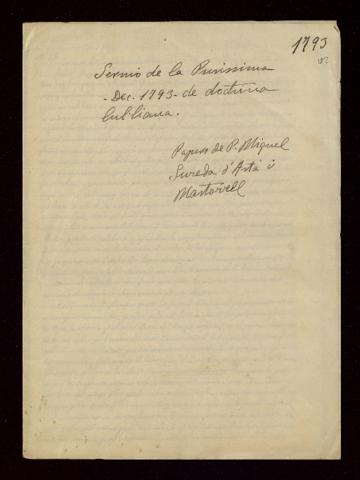 1793
Sermó de la Puríssima
- Dec. 1793 - de doctrina
luliana.
Papers de P. Miquel
Sureda d'Artà ó
Martorell